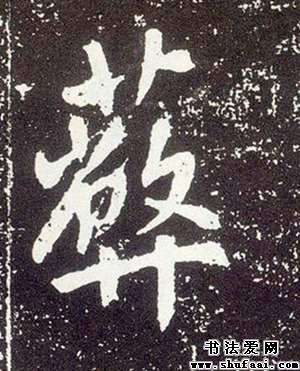 弊
书法爱网
www.shufaai.com